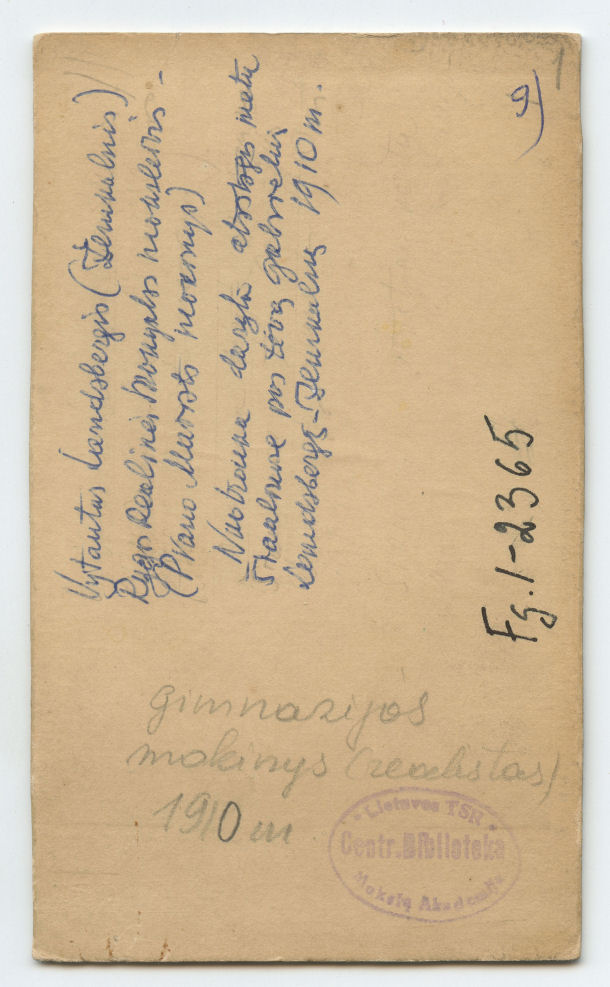 Vytautas Landsbergis (Žemkalnis)
Rygos Realinės Mokyklos moksleivis –
(Prano Mašioto mokinys)
Nuotrauka daryta atostogų metu
pas tėvą Gabrielių
Landsbergį-Žemkalnį 1910 m.
9
1
Fg. 1-2365
gimnazijos
mokinys (realistas)
1910 m
Lietuvos TSR
Centr. Biblioteka
Mokslų Akademija